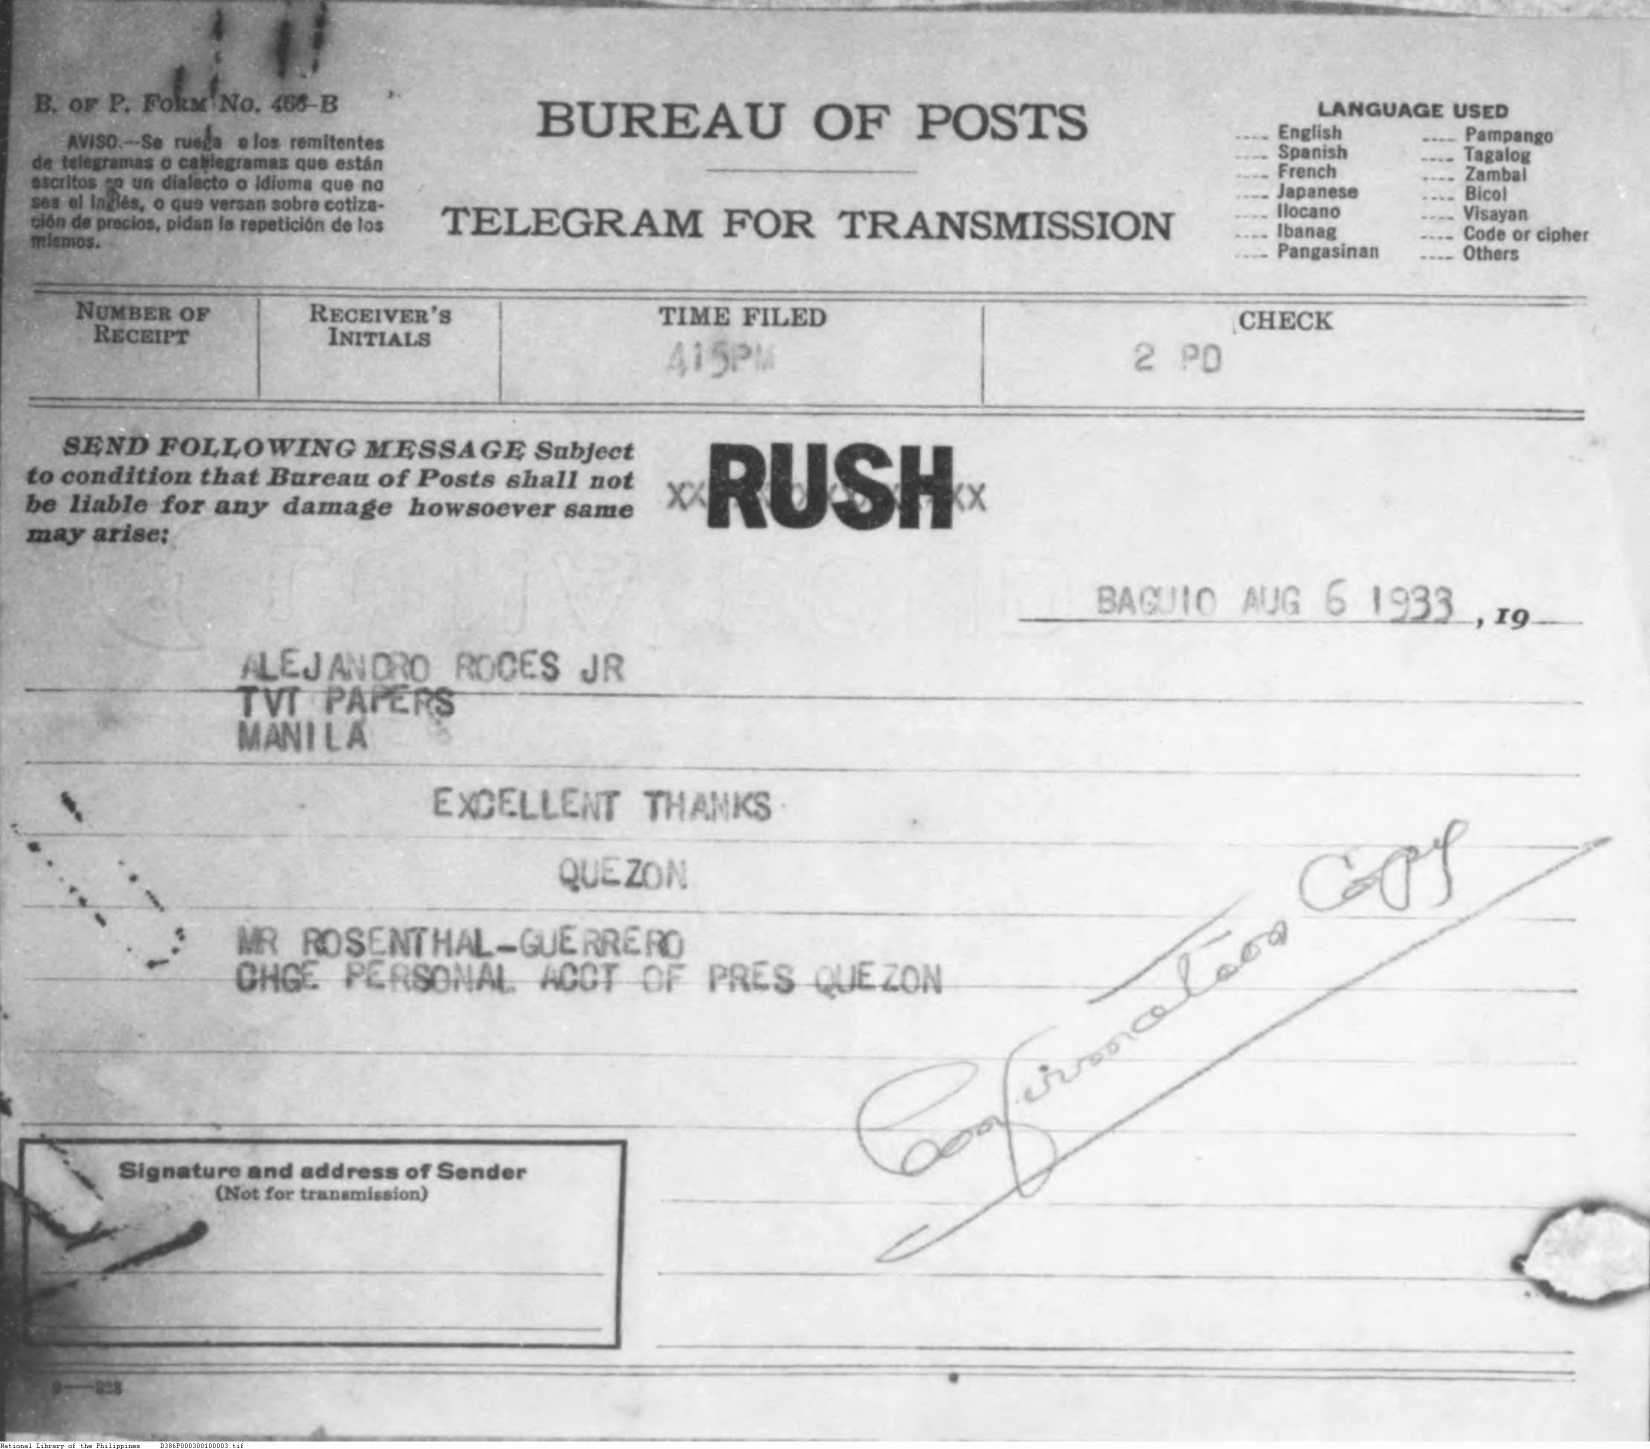 B. OF P. FORM NO. 466-B
AVISO.—Se ruega a los remitentes
de telegramas o cablegramas que están
escritos en un dialecto o idioma que no
sea el Inglés, o que versan sobre cotiza-
ción de precios, pidan la repetición de los
mismos.
BUREAU OF POSTS
TELEGRAM FOR TRANSMISSION
LANGUAGE USED
.... English .... Pampango
.... Spanish .... Tagalog
.... French .... Zambal
.... Japanese .... Bicol
.... Ilocano .... Visayan
.... Ibanag .... Code or cipher
.... Pangasinan .... Others
NUMBER OF
RECEIPT
RECEIVER'S
INITIALS
TIME FILED
415PM
CHECK
2 PD
SEND FOLLOWING MESSAGE Subject
to condition that Bureau of Posts shall not
be liable for any damage howsoever same
may arise:
RUSH
BAGUIO AUG 6 1933, 19
ALEJANDRO ROCES JR
TVT PAPERS
MANILA
EXCELLENT THANKS
QUEZON
MR ROSENTHAL-GUERRERO
CHGE PERSONAL ACCT OF PRES QUEZON
Confirmation Copy
Signature and address of Sender
(Not for transmission)
National Library of the Philippines D386P000300100003.tif